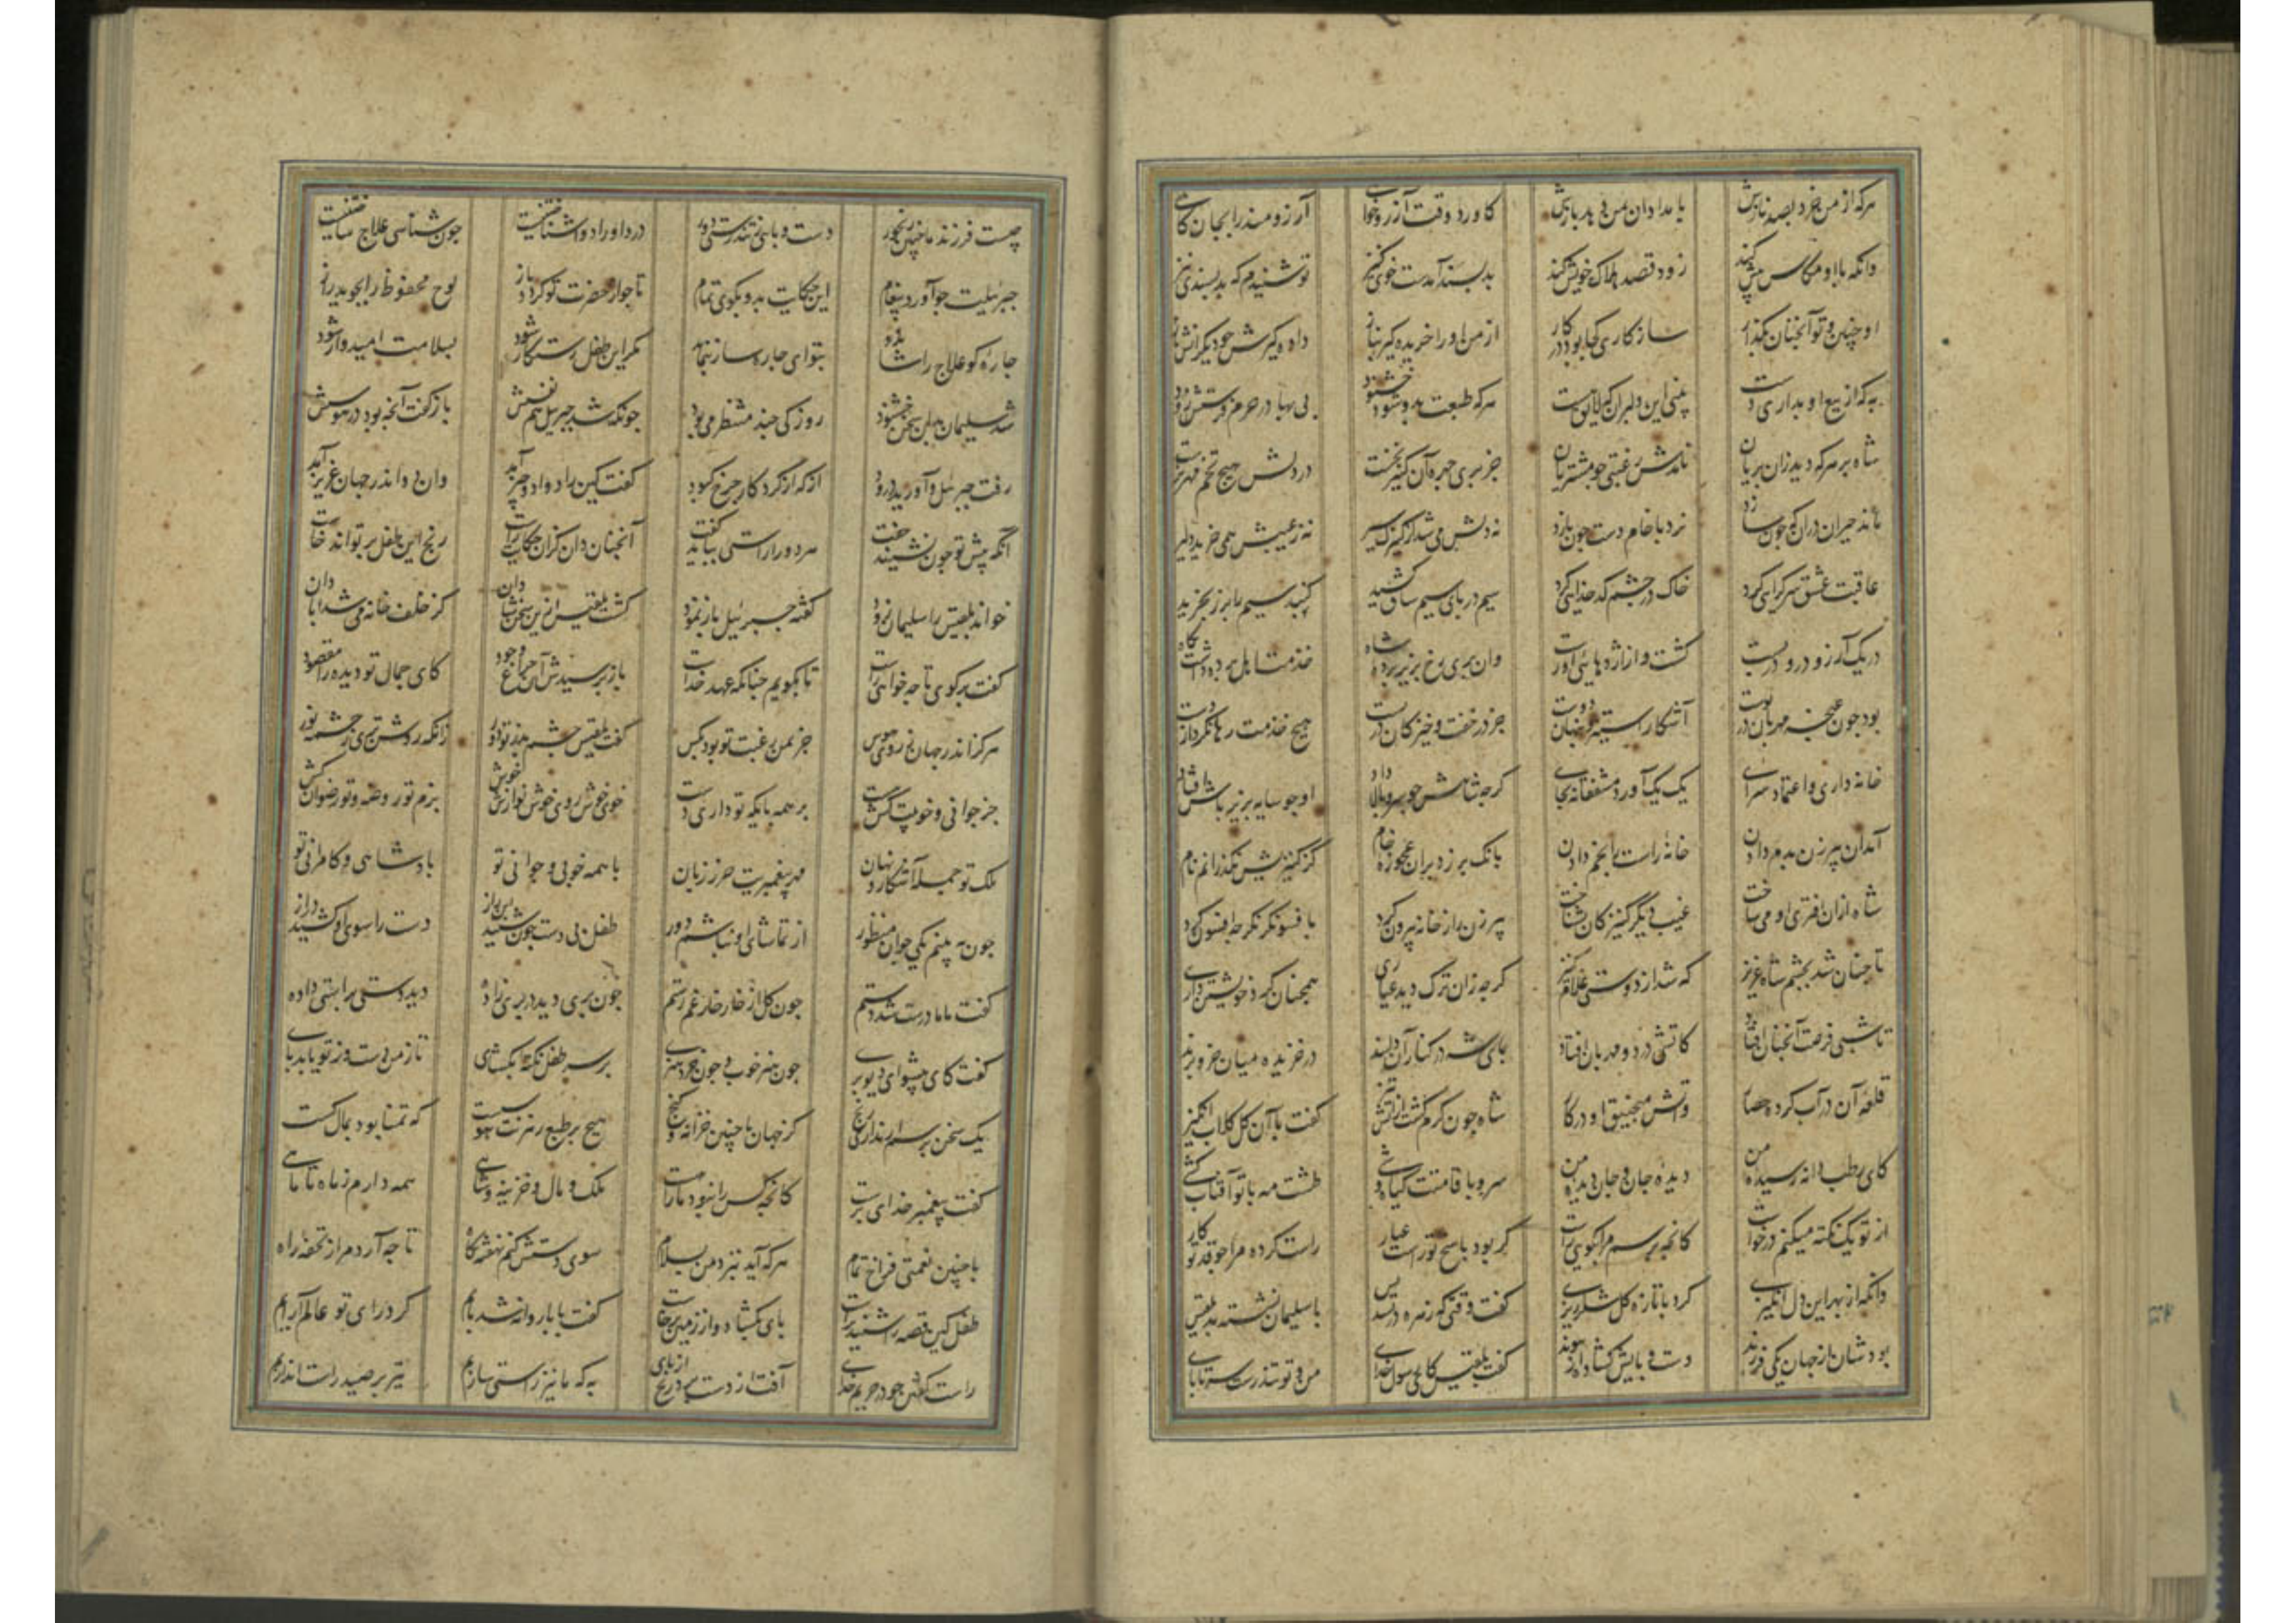 هرکه از من خرد بصد نازش بامدادان بمن دهد بازش کاورد وقت آرزو خواهی آرزومند را بجان کاهی
وانکه با او مکاس پیش کند زود قصد هلاک خویش کند بد پسند آمدست خوی کنیز تو شنیدم که بد پسندی نیز
او چنین و تو آنچنان بگذار سازکاری کجا بود در کار از من او را خریده گیر بناز داده گیرش چو دیگرانش باز
به که از بیع او بداری دست بینی این دلبران که لایق هست هرکه طبعت بدو شود خشنود بی بها در حرم فرستش زود
شاه بر هرکه دید زان پریان نامدش رغبتی چو مشتریان جز پری چهره آن کنیز نخست در دلش هیچ تخم مهر نرست
ماند حیران دران که چون سازد نرد با خام دست چون بازد نه دلش می شد از کنیزک سیر نه ز عیبش همی خرید دلیر
عاقبت عشق سرکرایی کرد خاک در چشم کدخدایی کرد سیم در پای سیم ساق کشید کنبد سیم را بزر بخرید
در یک آرزو درو در بست کشت و از اژدهایی او رست وان پری رخ بزیر پرده شاه خدمت اهل پرده داشت نکاه
بود چون غنچه مهربان در پوست آشکارا ستیز و پنهان دوست جز در خفت و خیز کان دربست هیچ خدمت رها نکرد از دست
خانه داری و اعتماد سرای یک یک آورد مشفقانه بجای کرچه شاهش چو سرو بالا داد او چو سایه بزیر پاش افتاد
آمدان پیرزن بدم دادن خانه راست را بخم دادن بانک بر زد بران عجوزه خام کز کنیزیش نکذرانم نام
شاه ازان افتری او می ساخت غیب دیگر کنیزکان شناخت پیرزن را ز خانه بیرون کرد با فسونکر نکر چه افسون کرد
تا چنان شد بچشم شاه عزیز که شد از دوستی غلام کنیز کرچه زان ترک دید عیاری همچنان کرد خویشتن داری
تا شبی فرصت آنچنان افتاد کاتشی در دو مهربان افتاد پای شه در کنار آن دلبند در خزیده میان خز و پرند
قلعه آن در آب کرده حصار واتش منجنیق او در کار شاه چون کرم کشت از آتش تیز کفت با آن کل کلاب انکیز
کای رطب دانه رسیده من دیده جان و جان دیده من سرو با قامتت کیاه وشی طشت مه با تو آفتابه کشی
از تو یک نکته میکنم درخواست کانچه پرسم مرا بکویی راست کر بود پاسخ تو راست عیار راست کرده مرا چو قد تو کار
وانکه از بهر این دل انکیزی کرد با تازه کل شکر ریزی کفت وقتی که زهره در تسدیس با سلیمان نشسته بد بلقیس
بودشان از جهان یکی فرزند دست و پایش کشاده از پیوند کفت بلقیس کای رسول خدای من و تو تندرست سر تا پای
چیست فرزند ما چنین رنجور دست و پایی ز تندرستی دور درد او را دوا شناختنیست چون شناسی علاج ساختنیست
جبرئیلت چو آورد پیغام این حکایت بدو بکوی تمام تا چو از حضرت تو کردد باز لوح محفوظ را بجوید راز
چاره کو علاج را شاید بتو ای چاره ساز بنماید مکر این طفل رستکار شود بسلامت امیدوار شود
شد سلیمان بدین سخن خشنود روزکی چند منتظر می بود چونکه شد جبرئیل هم نفسش باز کفت آنچه بود در هوسش
رفت جبرئیل و آورید درود از که از کردکار چرخ کبود کفت کین را دوا دو چیز آمد وان دو اندر جهان عزیز آمد
آنکه پیش تو چون نشیند جفت هر دو را راستی بباید کفت آنچنان دان کزان حکایت راست رنج این طفل بر تواند خاست
خواند بلقیس را سلیمان زود کفته جبرئیل باز نمود کشت بلقیس ازین سخن شادان کز خلف خانه می شد آبادان
کفت برکوی تا چه خواهی راست تا بکویم چنانکه عهد خداست باز پرسیدش آن چراغ وجود کای جمال تو دیده را مقصود
هرکز اندر جهان ز روی هوس جز بمن رغبت تو بود بکس کفت بلقیس چشم بد ز تو دور زانکه روشن تری ز چشمه نور
جز جوانی و خوبیت کت هست بر همه پایکه تو داری دست خوی خوش روی خوش نوازش خوش بزم تو روضه و تو رضوان کش
ملک تو جمله آشکار و نهان مهر پیغمبریت حرز زبان با همه خوبی و جوانی تو پادشاهی و کامرانی تو
چون به بینم یکی جوان منظور از تماشای او نباشم دور طفل بی دست چون شنید این راز دست را سوی او کشید دراز
کفت ماما درست شد دستم چون کل از خار خار غم رستم چون پری دید در پری زاده دید دستی براستی داده
کفت کای پیشوای دیو و پری چون هنر خوب و چون خرد هنری بر سر طفل نکته بکشای تا ز من دست وز تو یابد پای
یک سخن پرسم ار نداری رنج کز جهان با چنین خزانه و کنج هیچ بر طبع ره زنت هوسیست که تمنا بود بمال کست
کفت پیغمبر خدای پرست کانچه کس را نبود ما را هست ملک و مال و خزینه و شاهی همه دارم ز ماه تا ماهی
با چنین نعمتی فراخ و تمام هرکه آید بنزد من بسلام سوی دستش کنم نهفته نکاه تا چه آرد مرا ز تحفه راه
طفل کین قصه را شنید راست پای بکشاد و از زمین برخاست کفت بابا روانه شد پایم کرد رای تو عالم آرایم
راست کفتن چو در حریم خدای آفت از دست برد و رنج از پای به که ما نیز راستی سازیم تیر بر صید راست اندازیم